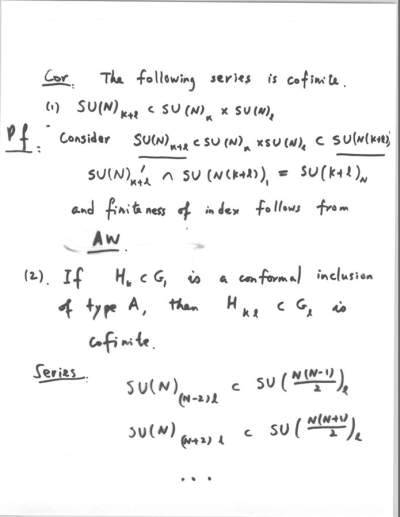 Cor. The following series is cofinite.
(1) SU(N)ₖ₊ₗ ⊂ SU(N)ₖ × SU(N)ₗ
Pf: Consider SU(N)ₖ₊ₗ ⊂ SU(N)ₖ × SU(N)ₗ ⊂ SU(N(k+l))
SU(N)ₖ₊ₗ' ∩ SU(N(k+l))₁ = SU(k+l)_N
and finiteness of index follows from
AW.
(2). If Hₖ ⊂ G₁ is a conformal inclusion
of type A, then Hₖₗ ⊂ Gₗ is
cofinite.
Series.
SU(N)₍N-2₎ₗ ⊂ SU(N(N-1)/2)ₗ
SU(N)₍N+2₎ₗ ⊂ SU(N(N+1)/2)ₗ
...